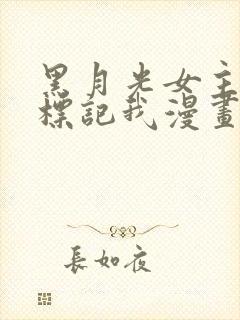 黑月光女主
標記我漫畫
長如夜